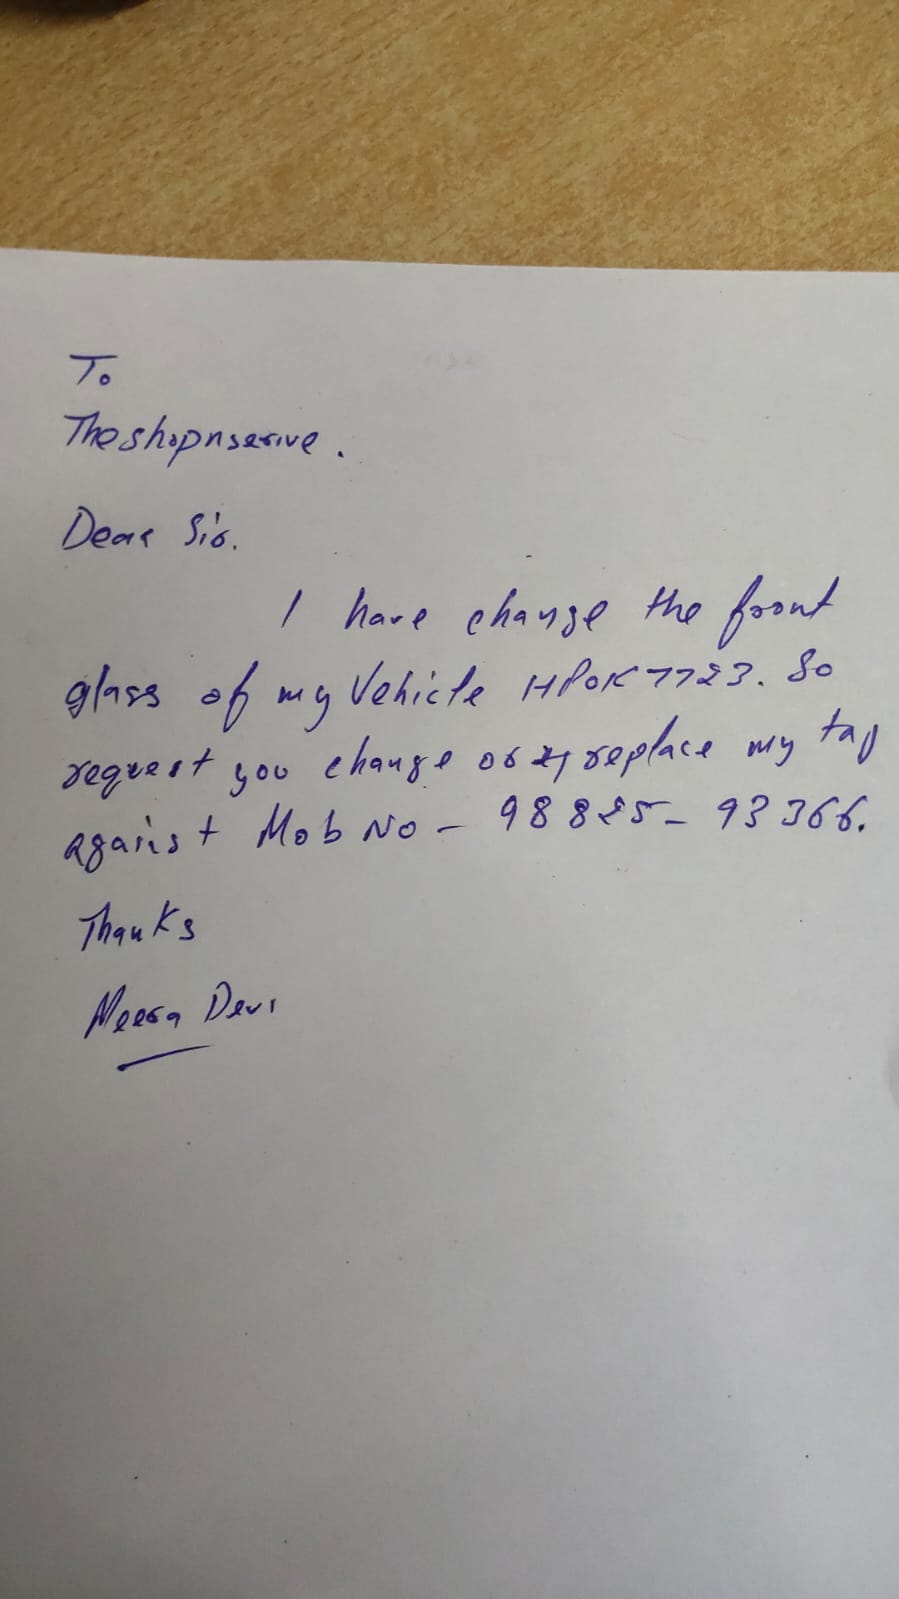 To
Theshopnserive.
Dear Sir.
I have change the front
glass of my Vehicle HP0K7723. So
request you change or replace my tag
against Mob No - 98825-93366.
Thanks
Meera Devi